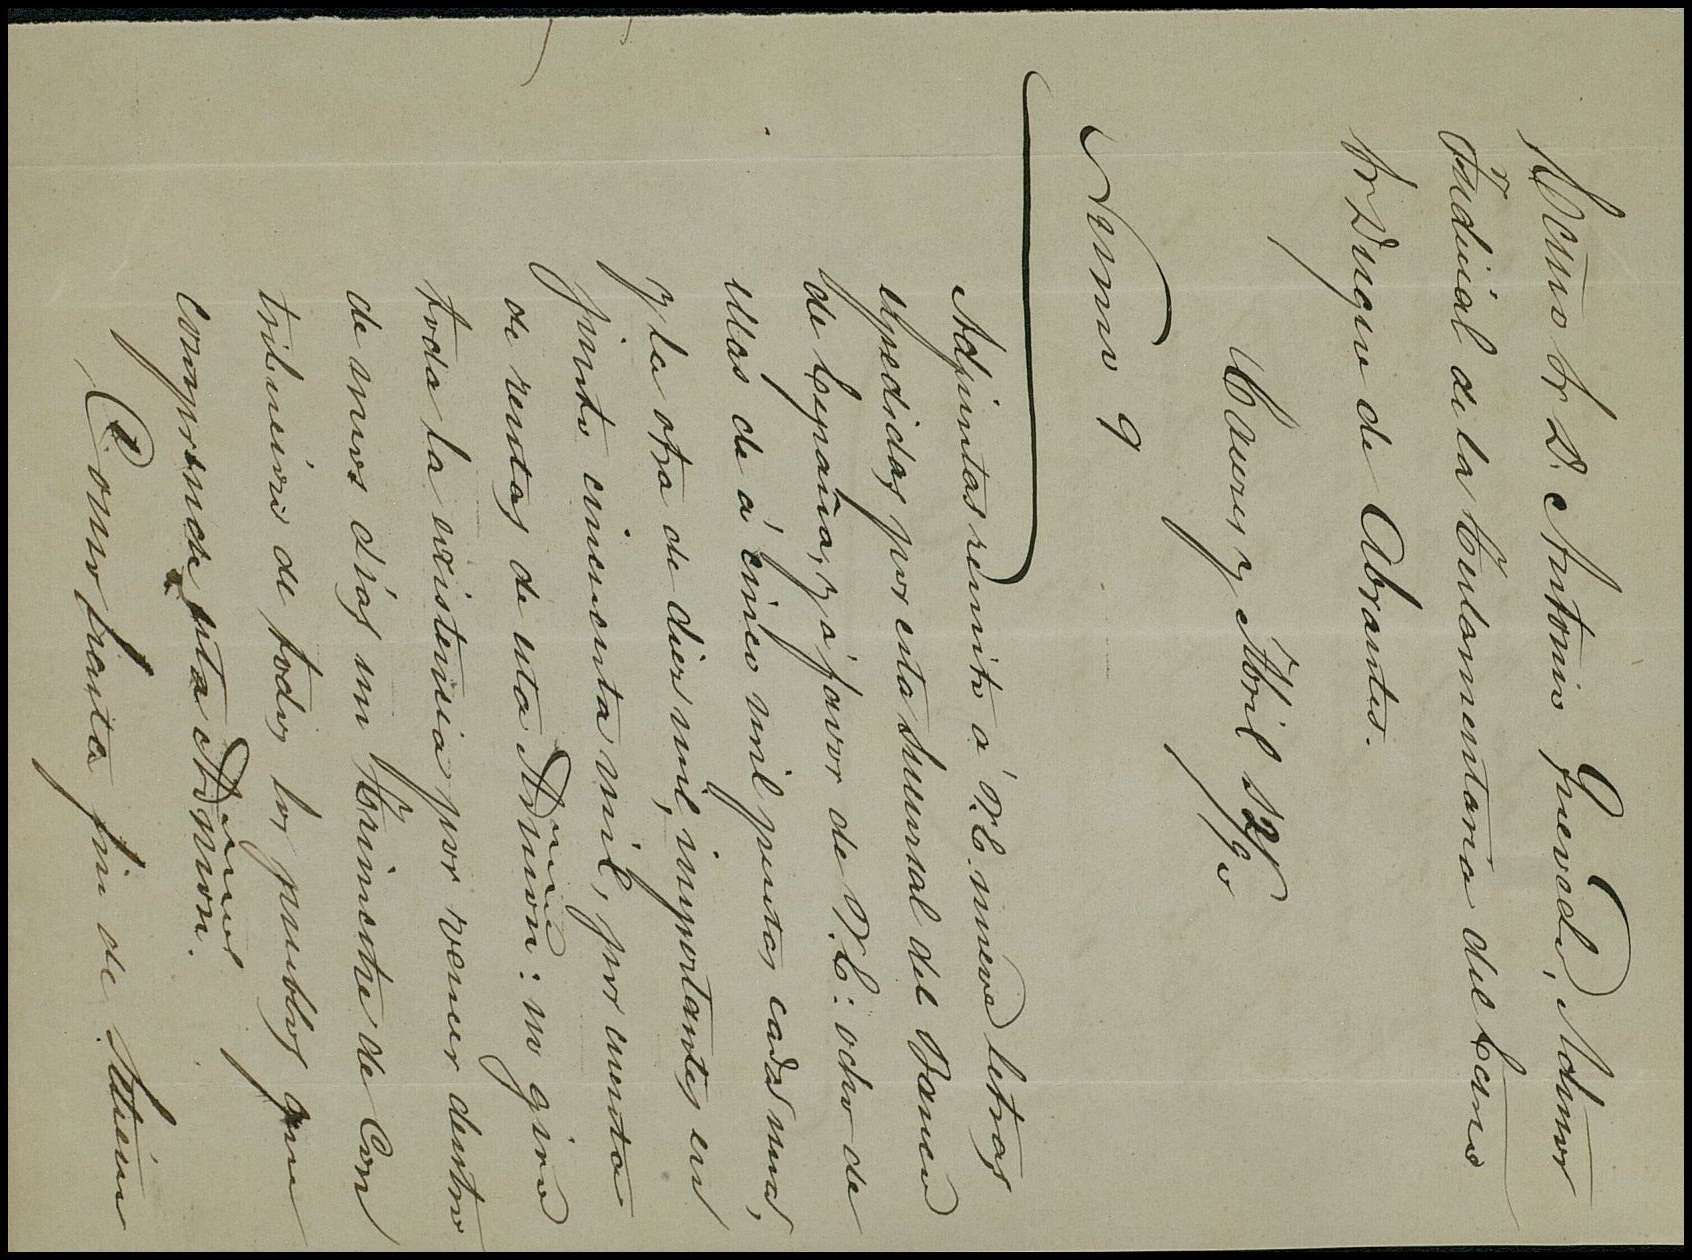 Excmo Sr D. Antonio Quevedo, Admor
Judicial de la Testamentaria del Excmo
Sr Duque de Abrantes.
Abril
Numo 9
Adjuntas remito á V.E. nueve letras
espedidas por esta Sucursal del Banco
de España, y á favor de V.E.: ocho de
ellas de á cinco mil pesetas cada una,
y la otra de diez mil, importantes en
junto cincuenta mil, por cuenta
de rentas de esta Admon: no giro
toda la existencia por vencer dentro
de unos días un trimestre de Con
tribución de todos los pueblos que
comprende esta Admon.
Como hasta fin de